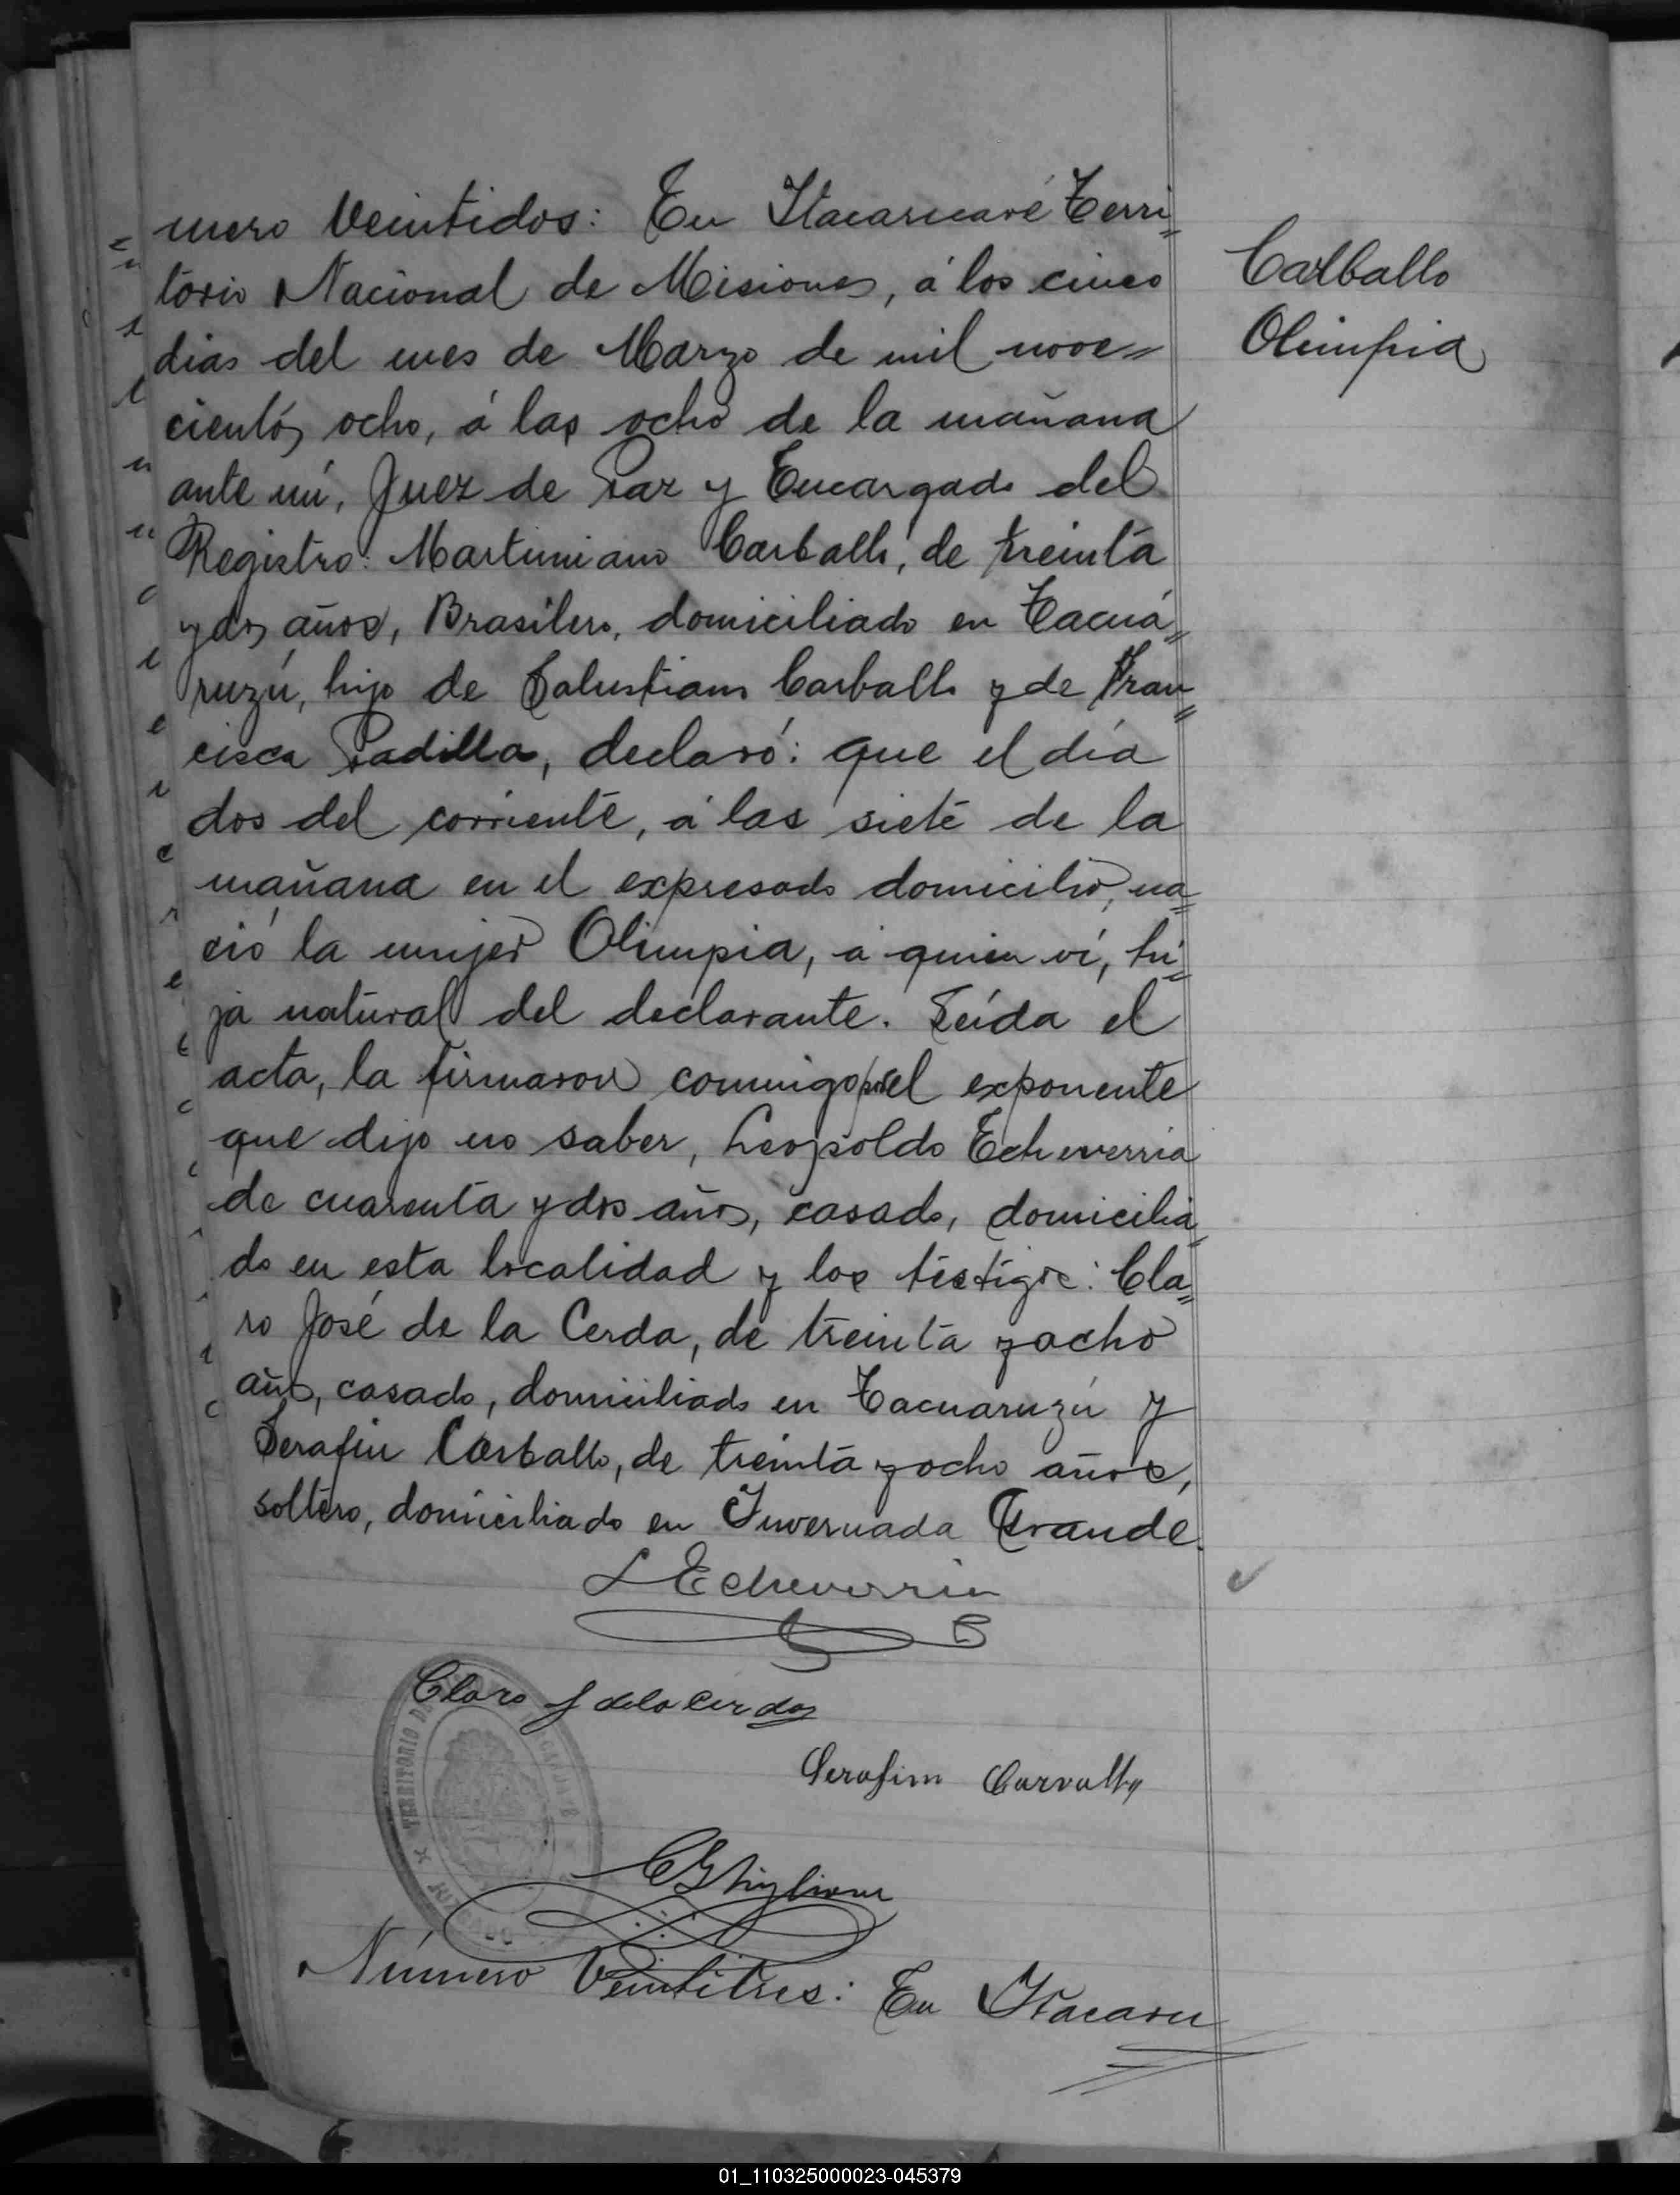 mero Veintidos: En Itacaruaré Terri=
torio Nacional de Misiones, á los cinco
dias del mes de Marzo de mil nove=
cientos ocho, á las ocho de la mañana
ante mí, Juez de Paz y Encargado del
Registro: Martiniano Carballo, de treinta
y dos años, Brasilero, domiciliado en Tacuá=
ruzú, hijo de Salustiano Carballo y de Fran=
cisca Padilla, declaró: que el día
dos del corriente, á las siete de la
mañana en el expresado domicilio, na=
ció la mujer Olimpia, á quien ví, hi=
ja natural del declarante. Leída el
acta, la firmaron conmigo por el exponente
que dijo no saber, Leopoldo Echeverria
de cuarenta y dos años, casado, domicilia=
do en esta localidad y los testigos: Cla=
ro José de la Cerda, de treinta y ocho
años, casado, domiciliado en Tacuaruzú y
Serafin Carballo, de treinta y ocho años,
soltero, domiciliado en Invernada Grande.
Carballo
Olimpia
L Echeverria
Claro J de la Cerda
Serafim Carvallo
TERRITORIO DE
Número Veintitres: En Itacaru=
01_110325000023-045379